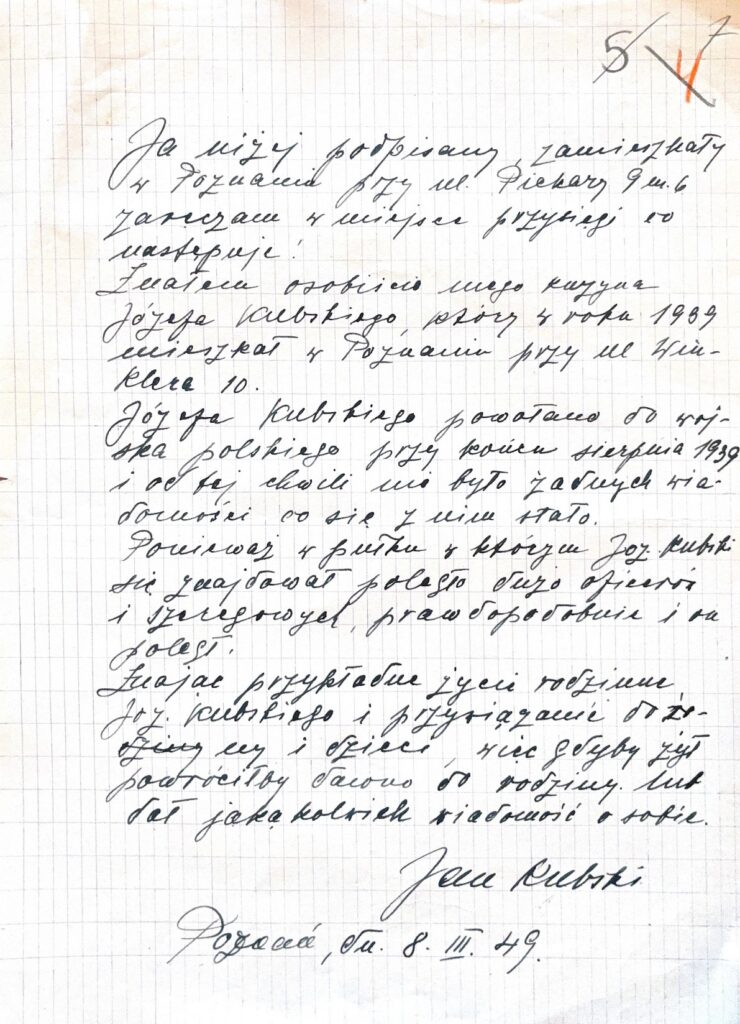 5 4 7
Ja niżej podpisany, zamieszkały
w Poznaniu przy ul. Piekary 9 m. 6
zaręczam w miejsce przysięgi co
następuje!
Znałem osobiście mego kuzyna
Józefa Kubskiego, który w roku 1939
mieszkał w Poznaniu przy ul Win-
klera 10.
Józefa Kubskiego powołano do woj-
ska polskiego przy końcu sierpnia 1939
i od tej chwili nie było żadnych wia-
domości co się z nim stało.
Ponieważ w pułku w którym Joz. Kubski
się znajdował poległo dużo oficerów
i szeregowych, prawdopodobnie i on
poległ.
Znając przykładne życie rodzinne
Joz. Kubskiego i przywiązanie do żo-
ny i dzieci, więc gdyby żył
powróciłby dawno do rodziny lub
dał jakąkolwiek wiadomość o sobie.
Jan Kubski
Poznań, dn. 8. III. 49.